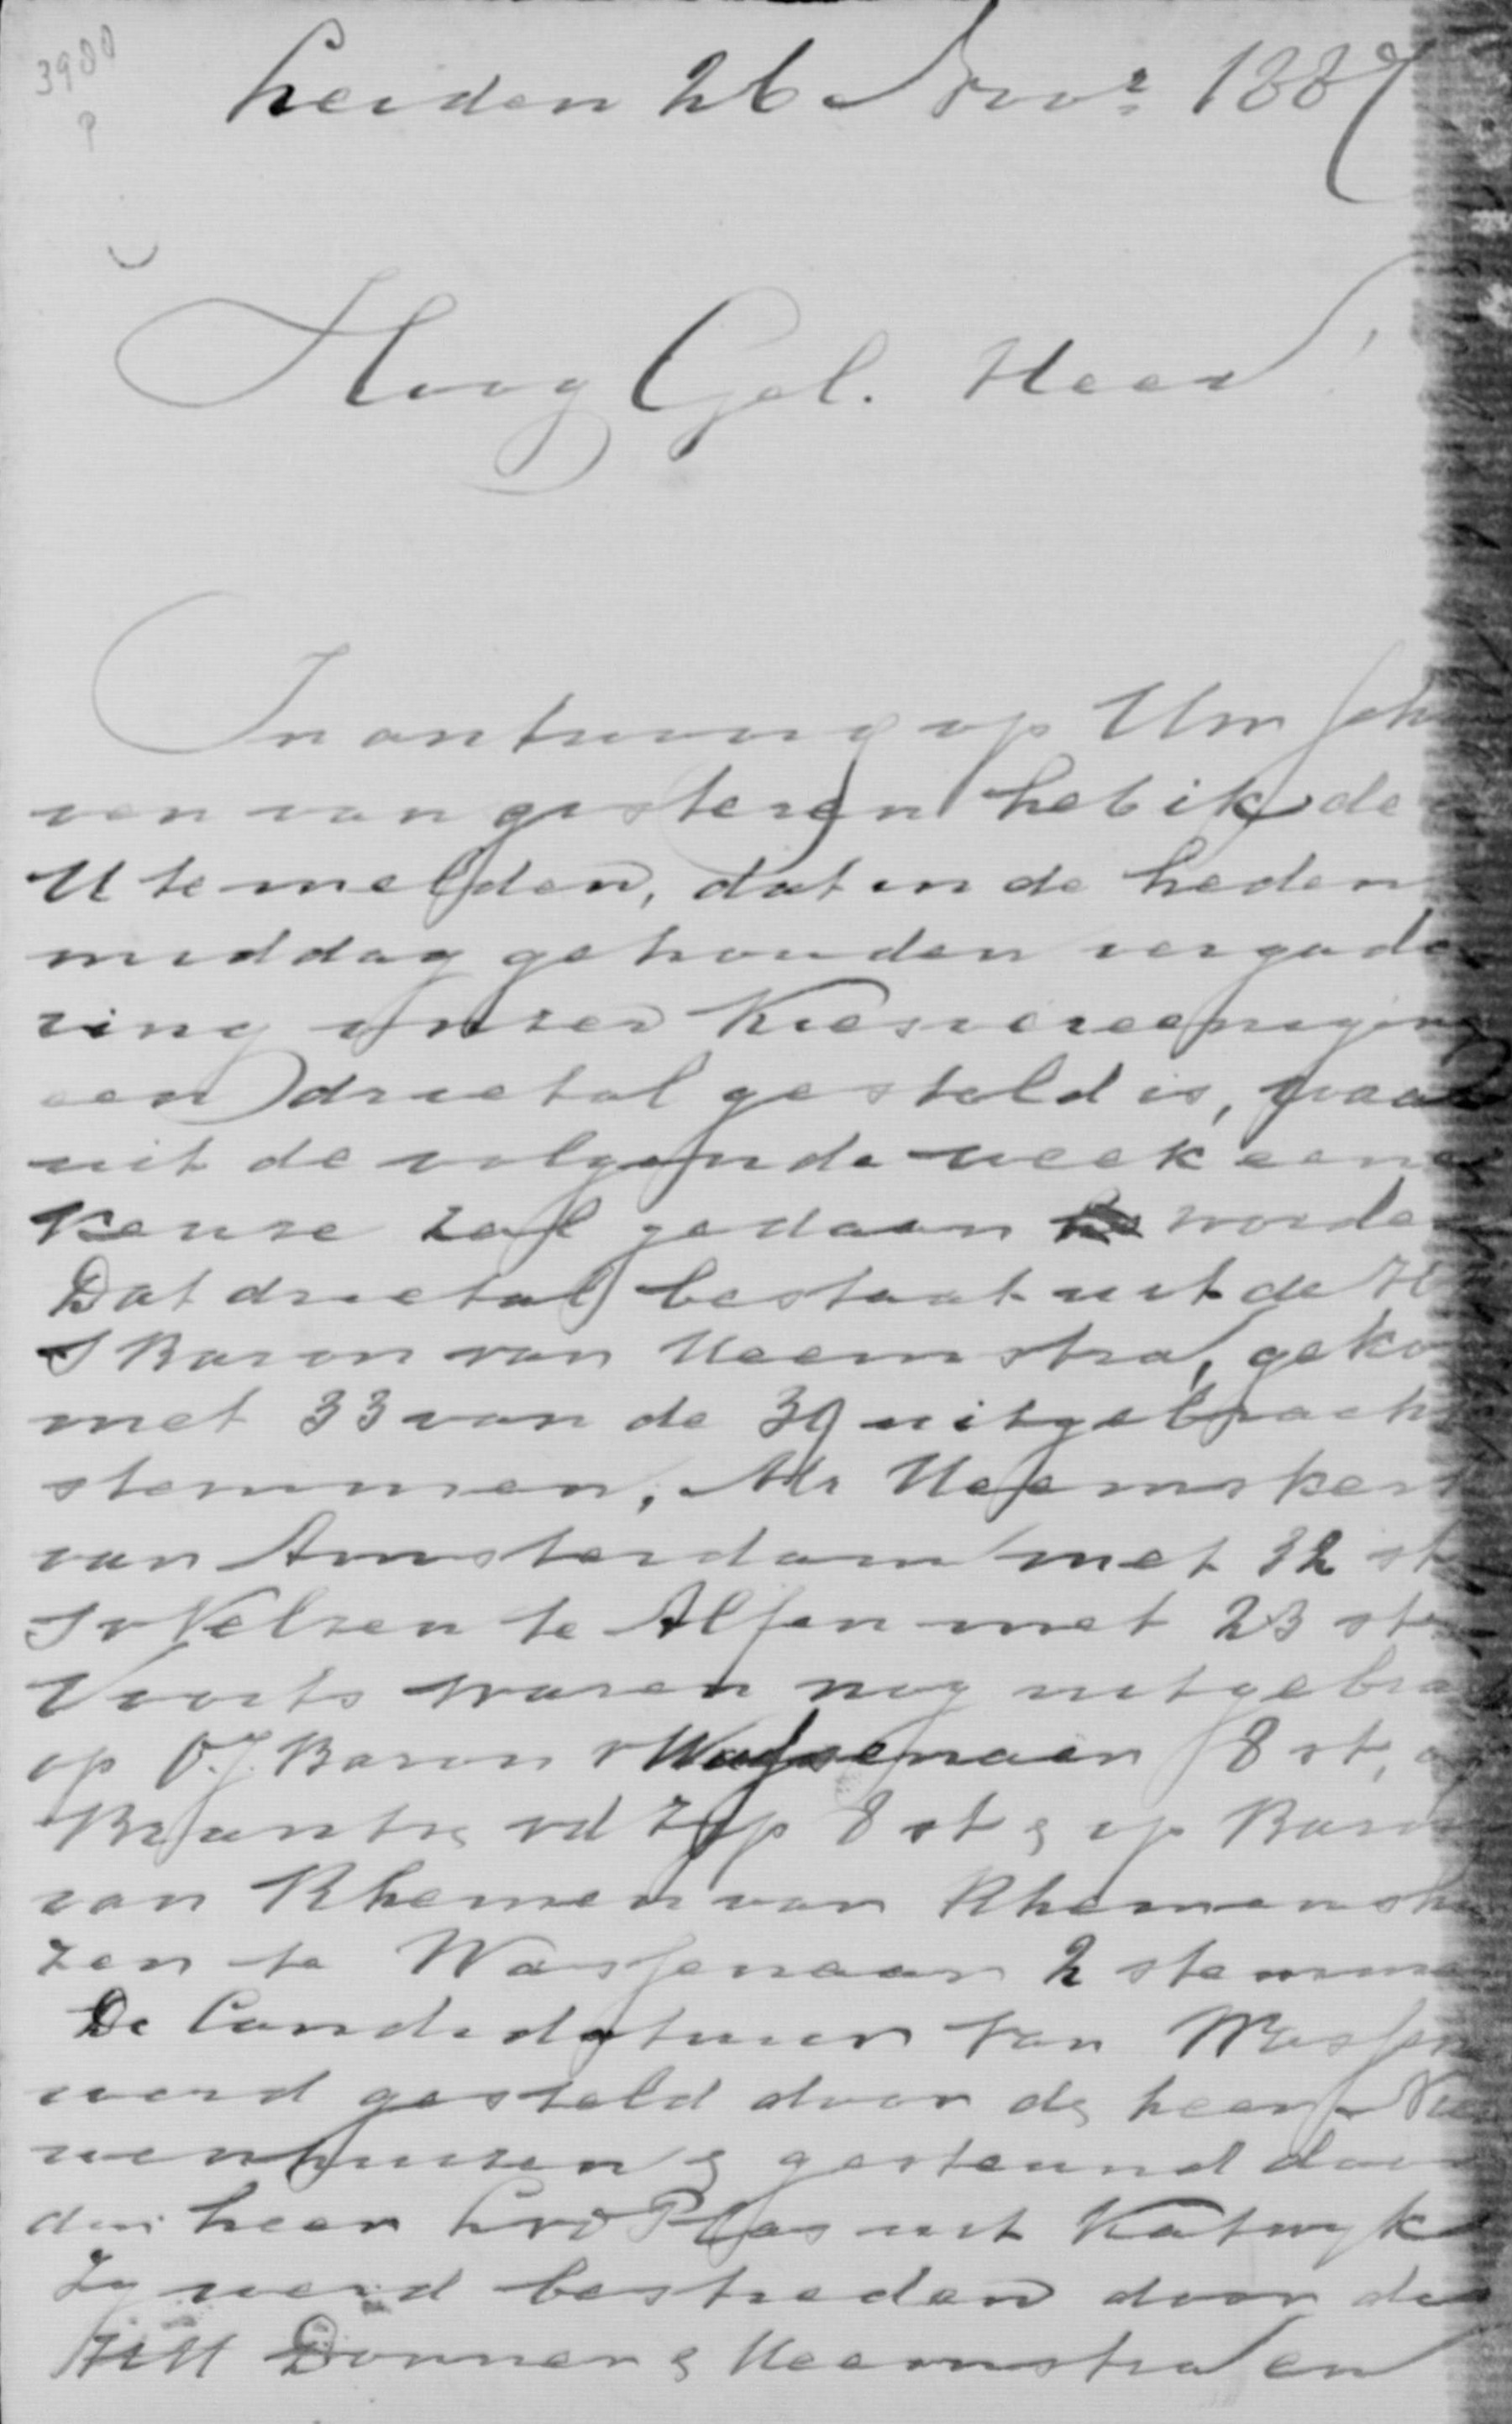 3980
Leiden 26 Novr 1887
Hoog Gel. Heer!
In antwoord op Uw schr
ven van gisteren heb ik de
U te melden, dat in de heden
middag gehouden vergade
ring onzer Kiesvereeniging
een drietal gesteld is, waar
uit de volgende week eene
keuze zal gedaan worde
Dat drietal bestaat uit de H
S Baron van Heemstra, geko
met 33 van de 39 uitgebrach
stemmen, Mr Heemskerk
van Amsterdam met 32 st
J v Velzen te Alfen met 23 st
Voorts waren nog uitgebra
op O.J. Baron v Wassenaer 8 st, o
Brants vd Zyp 8 st & op Baron
van Rhemen van Rhemenshu
zen te Wassenaar 2 stemme
De Candidatuur van Wassen
werd gesteld door de heer Nieu
wenhuizen & gesteund door
den heer Pvd Plas uit Katwyk
Zy werd bestreden door de
HH Donner & Heemstra en